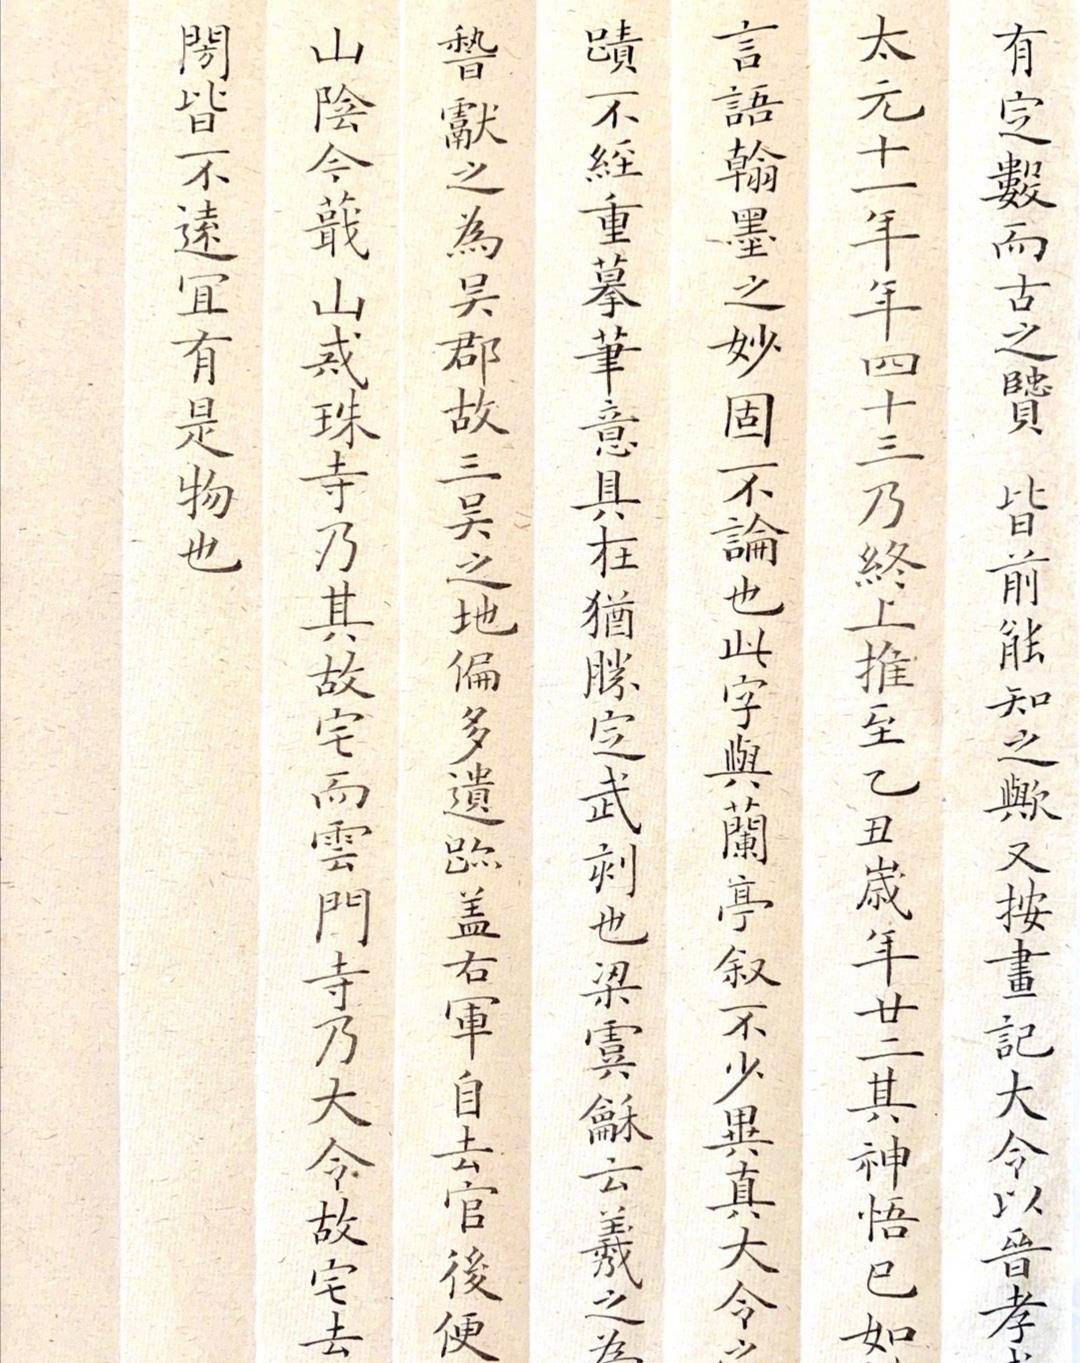 有定數而古之賢皆前能知之歟又按畫記大令以晉孝
太元十一年年四十三乃終上推至乙丑歲年廿二其神悟已如
言語翰墨之妙固不論也此字與蘭亭叙不少異真大令之
蹟不經重摹筆意具在猶勝定武刻也梁虞龢云羲之為
獻之為吳郡故三吳之地偏多遺跡盖右軍自去官後便
山陰今蕺山戒珠寺乃其故宅而雲門寺乃大令故宅去
皆不遠宜有是物也